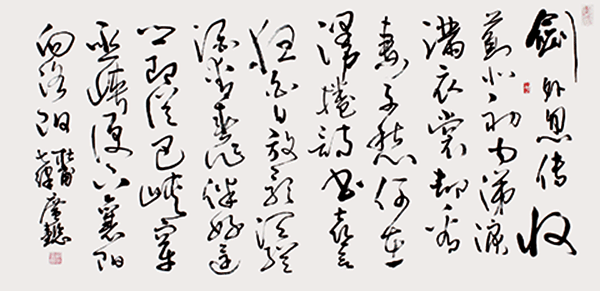 劍外忽传收
蓟北初闻涕泪
满衣裳却看
妻子愁何在
漫捲诗书喜欲
狂白日放歌须纵
酒青春作伴好还
乡即从巴峡穿
巫峡便下襄阳
向洛阳
杜甫